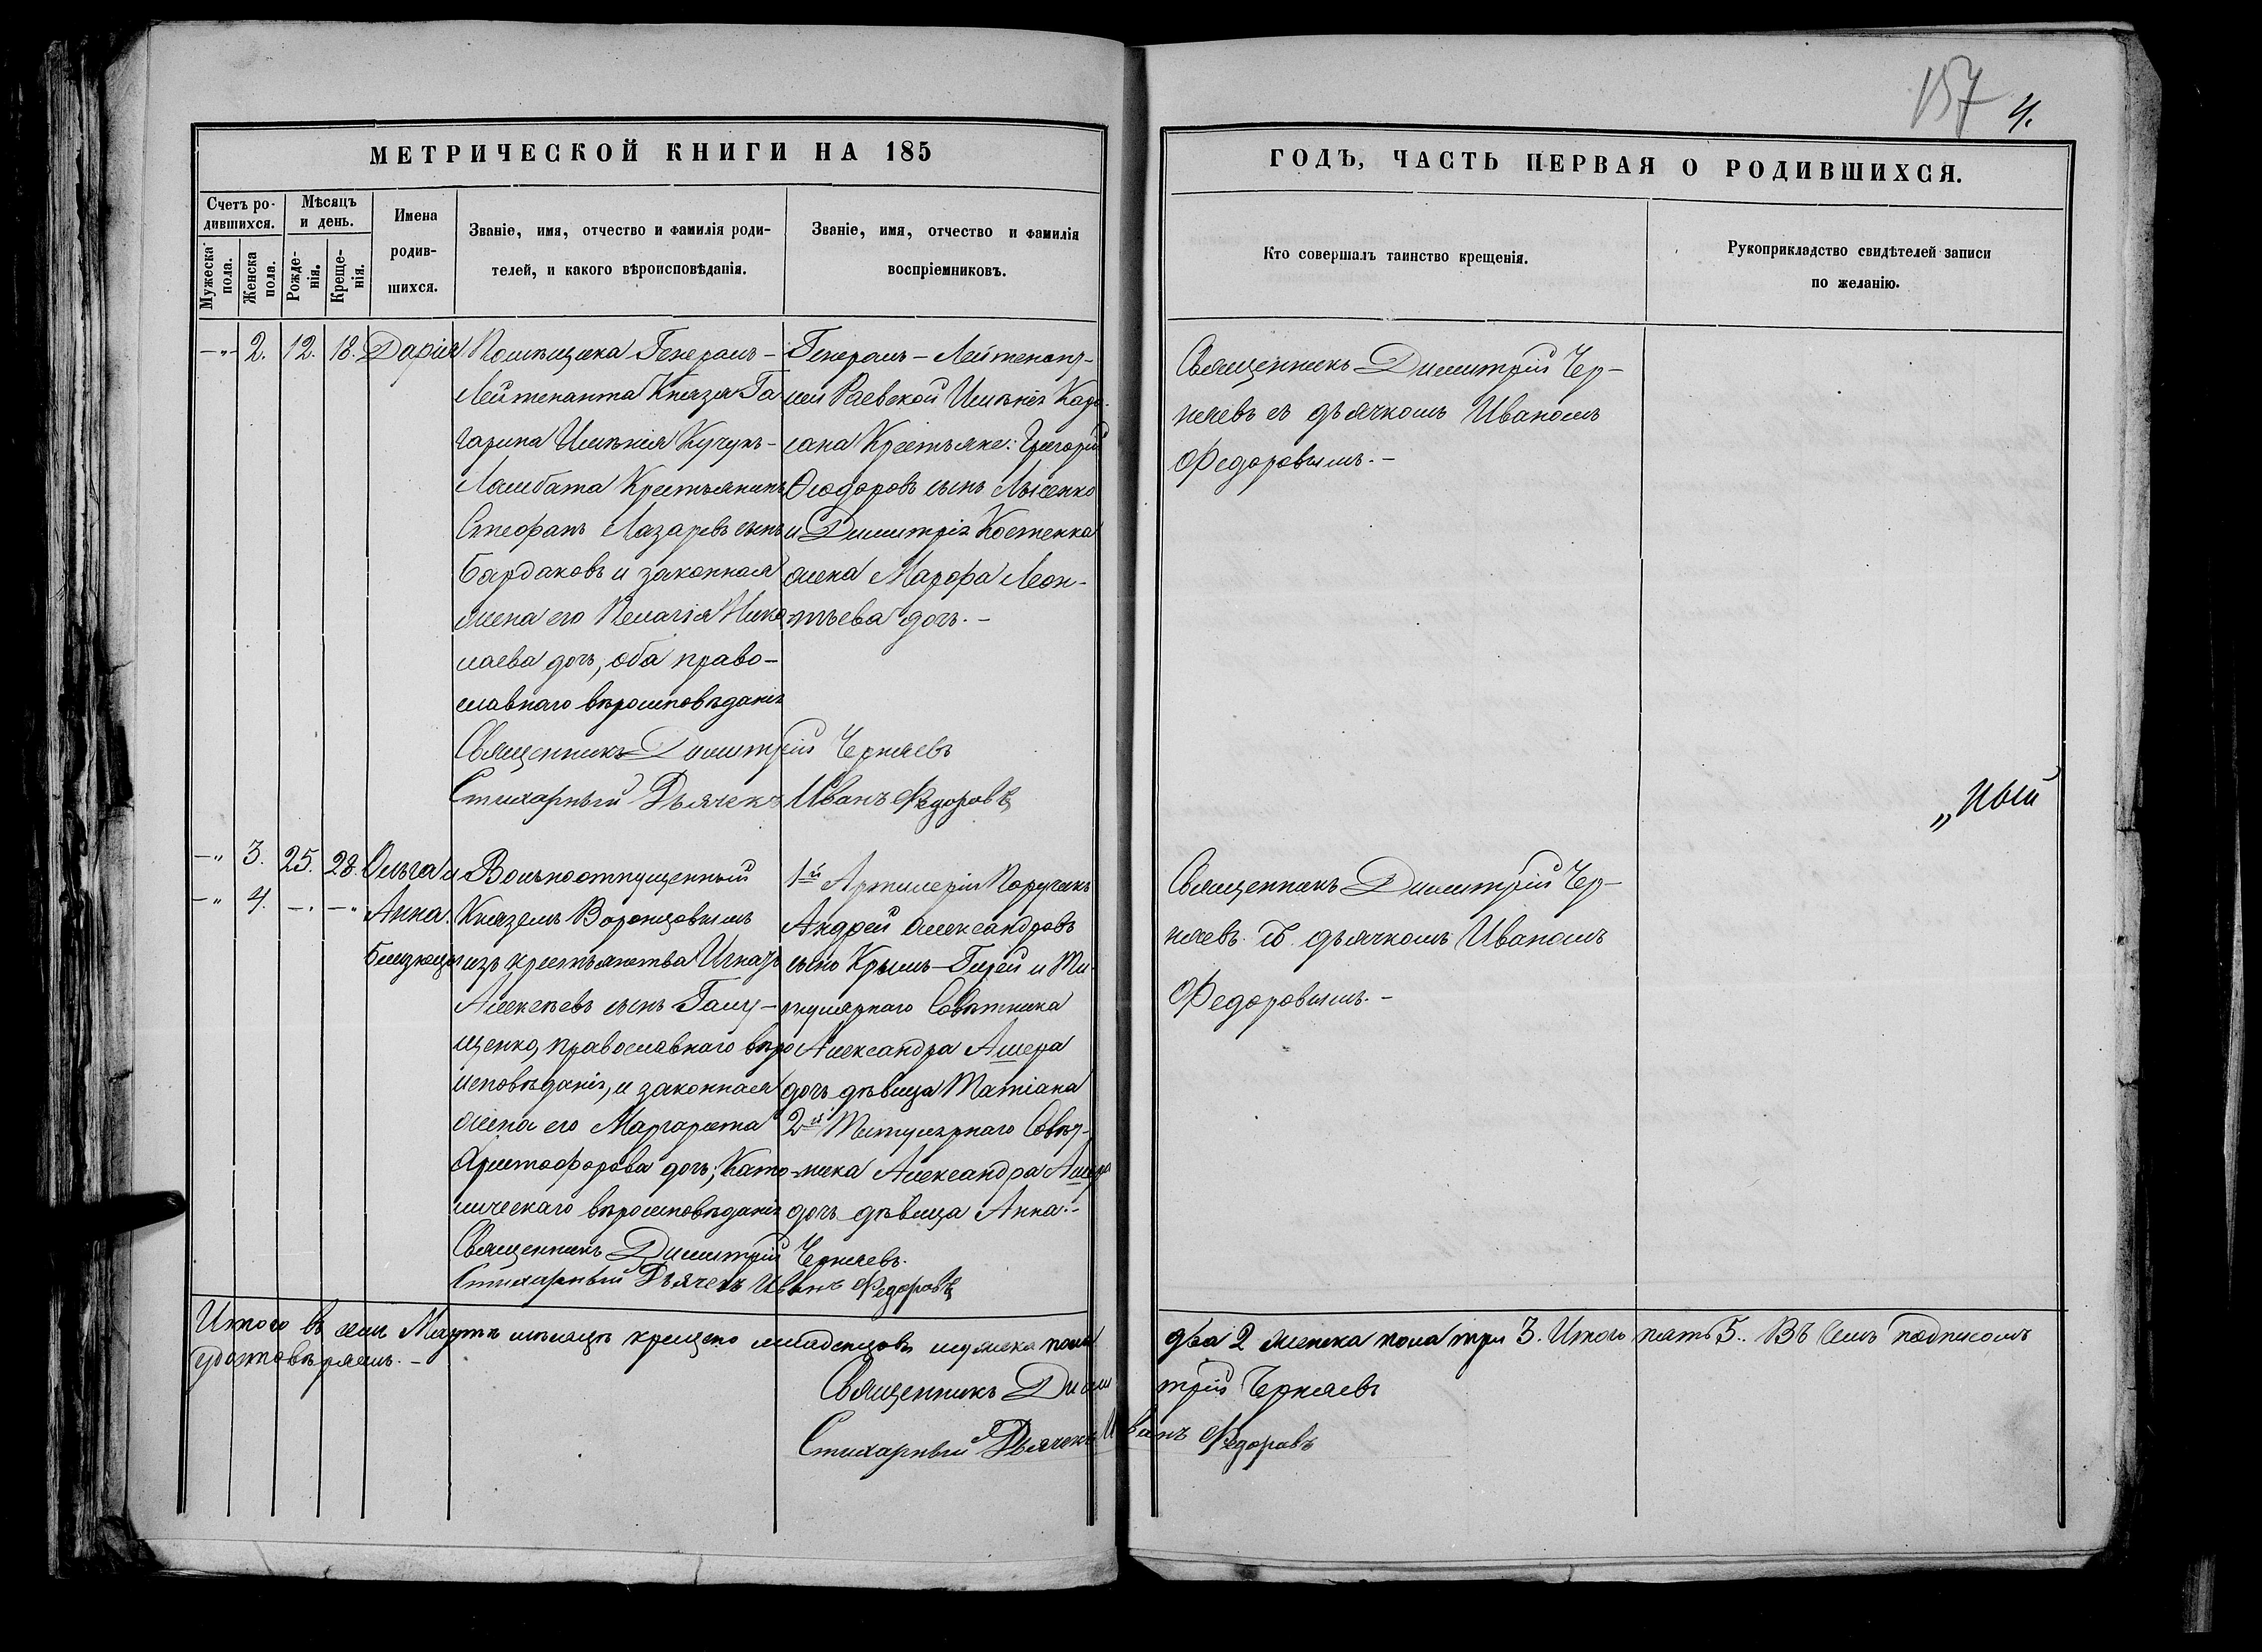 157 4.
МЕТРИЧЕСКОЙ КНИГИ НА 185
ГОДЪ, ЧАСТЬ ПЕРВАЯ О РОДИВШИХСЯ.
Счетъ ро-
дившихся.
Мужеска
пола.
Женска
пола.
Мѣсяцъ
и день.
Рожде-
нія.
Креще-
нія.
Имена
родив-
шихся.
Званіе, имя, отчество и фамилія роди-
телей, и какого вѣроисповѣданія.
Званіе, имя, отчество и фамилія
воспріемниковъ.
Кто совершалъ таинство крещенія.
Рукоприкладство свидѣтелей записи
по желанію.
-"- 2. 12. 18. Дарія
Помѣщика Генералъ-
Лейтенанта Князя Га-
гарина Имѣнія Кучукъ-
Ламбата Крестьянинъ
Стефанъ Лазаревъ сынъ
Бардаковъ и законная
жена его Пелагія Нико-
лаева дочь, оба право-
славнаго вѣроисповѣданія
Генералъ-Лейтенант-
ши Раевской Имѣнія Кара-
сана Крестьяне: Григорій
Ѳеодоровъ сынъ Лысенко
и Димитрія Костенка
жена Марфа Леон-
тьева дочь.-
Священникъ Димитрій Чер-
няевъ съ дьячкомъ Иваномъ
Федоровымъ.-
Священникъ Димитрій Черняевъ
Стихарный Дьячекъ Иванъ Федоровъ
„ный
-" 3. 25. 28. Ольга и
-" 4. -" -" Анна.
Близнецы
Вольноотпущенный
Княземъ Воронцовымъ
изъ крестьянства Игнатъ
Алексѣевъ сынъ Галу-
щенко, православнаго вѣро
исповѣданія, и законная
жена его Маргарета
Христофорова дочь, Като-
лическаго вѣроисповѣданія
1й Артилеріи Поручикъ
Андрей Александровъ
сынъ Крымъ-Гирей и Ти-
тулярнаго Совѣтника
Александра Ашера
дочь дѣвица Татіана
2й Титулярнаго Совѣт-
ника Александра Ашера
дочь дѣвица Анна.-
Священникъ Димитрій Чер-
няевъ съ дьячкомъ Иваномъ
Федоровымъ.-
Священникъ Димитрій Черняевъ.
Стихарный Дьячекъ Иванъ Федоровъ
Итого въ семъ Мартѣ мѣсяцѣ крещено младенцовъ мужеска пола два 2 женска пола три 3. Итого пять 5. Въ семъ подписомъ
удостовѣряемъ.-
Священникъ Димитрій Черняевъ
Стихарный Дьячекъ Иванъ Федоровъ